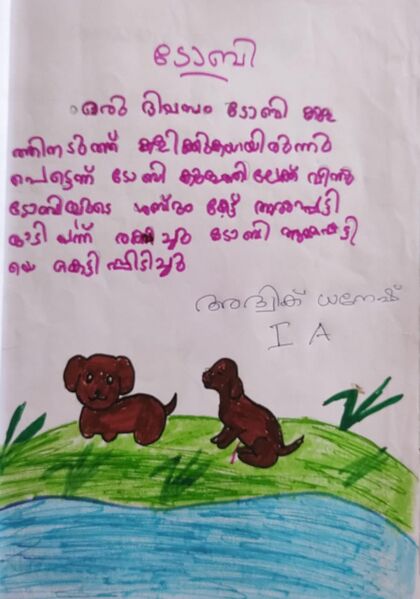 ടോബി
ഒരു ദിവസം ടോബി കുള
ത്തിനടുത്ത് കളിക്കുകയായിരുന്നു
പെട്ടെന്ന് ടോബി കുളത്തിലേക്ക് വീണു
ടോബിയുടെ ശബ്ദം കേട്ട് അമ്മപട്ടി
ഓടി വന്ന് രക്ഷിച്ചു ടോബി അമ്മപട്ടി
യെ കെട്ടിപ്പിടിച്ചു
അദ്വിക് ധനേഷ്
I A